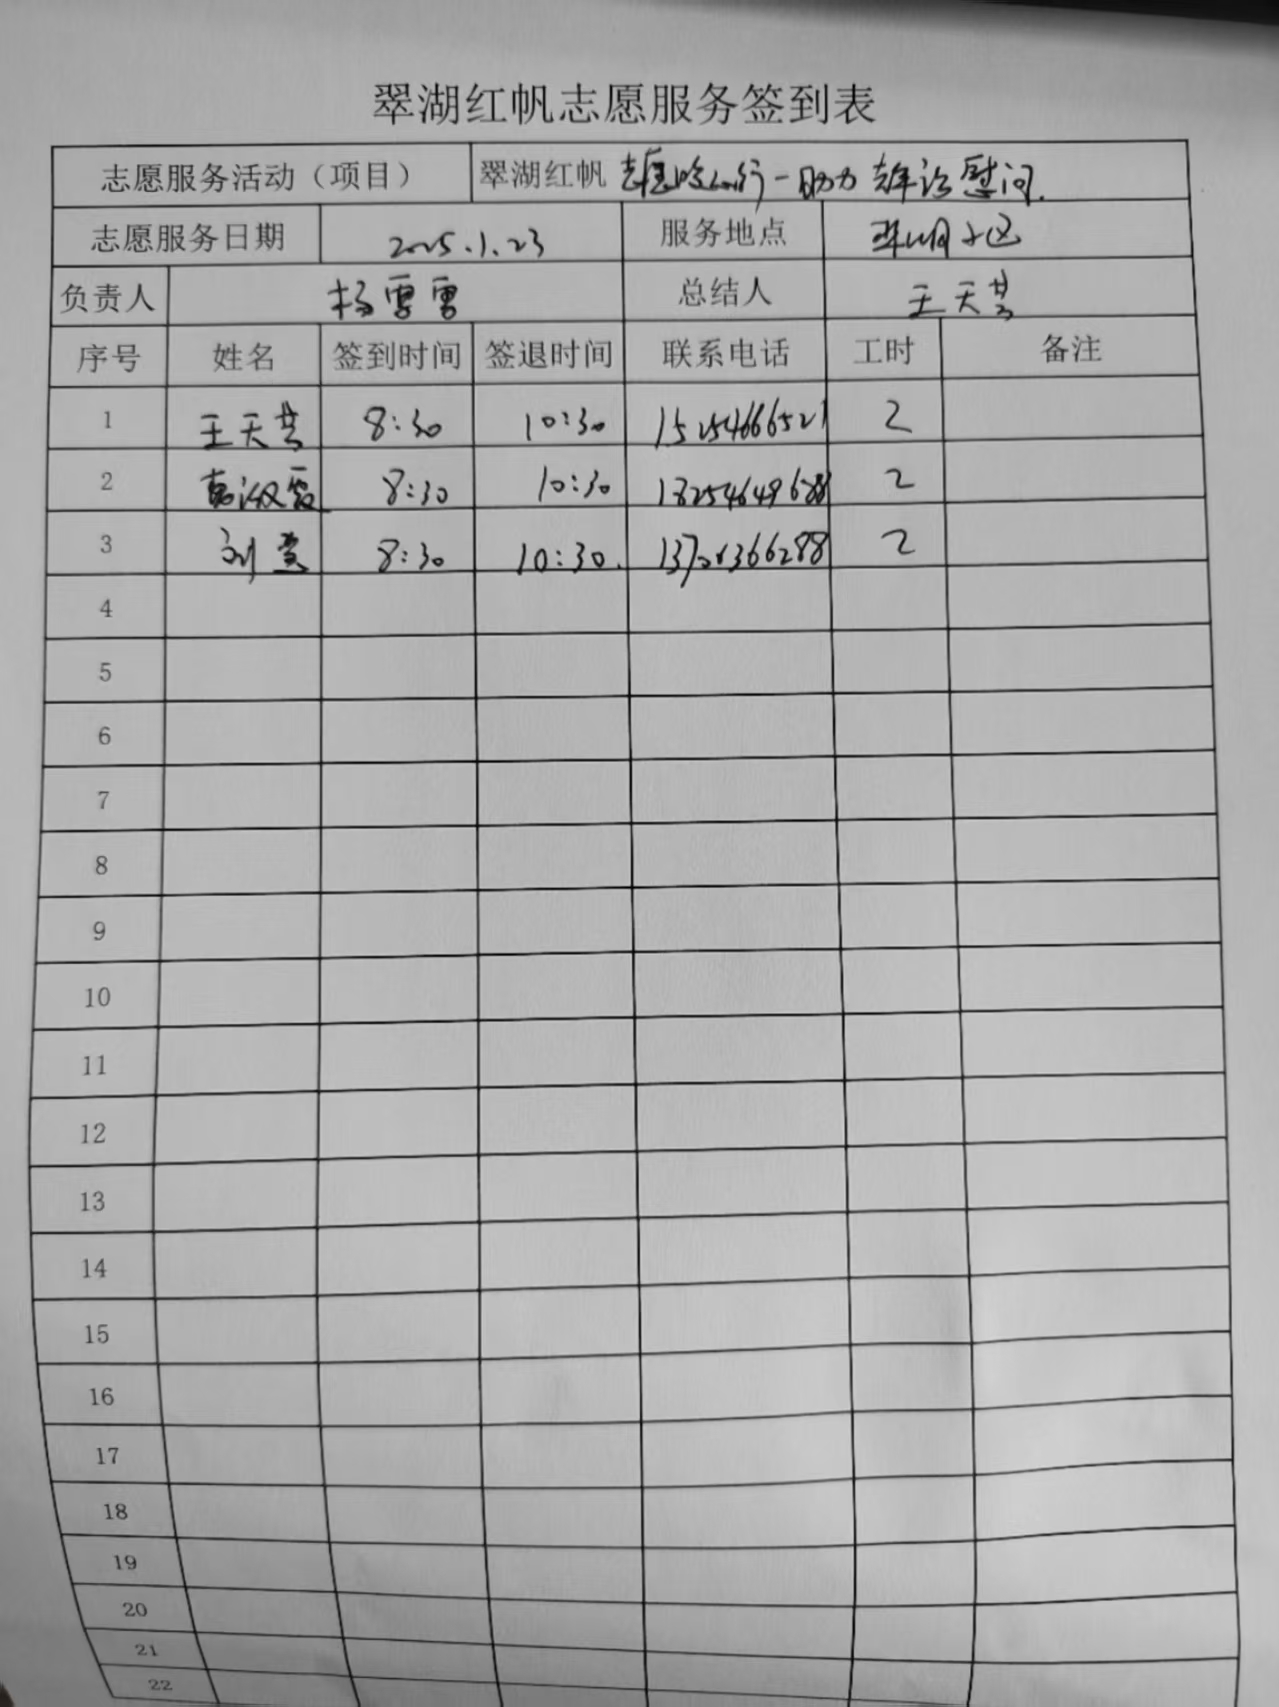 翠湖红帆志愿服务签到表
志愿服务活动（项目） 翠湖红帆 志愿 行一助力 慰问.
志愿服务日期 2025.1.23 服务地点 小区
负责人 杨雪雪 总结人 王天芸
序号 姓名 签到时间 签退时间 联系电话 工时 备注
1 王天芸 8:30 10:30 15254666521 2
2 8:30 10:30 2
3 刘 8:30 10:30. 2
4
5
6
7
8
9
10
11
12
13
14
15
16
17
18
19
20
21
22